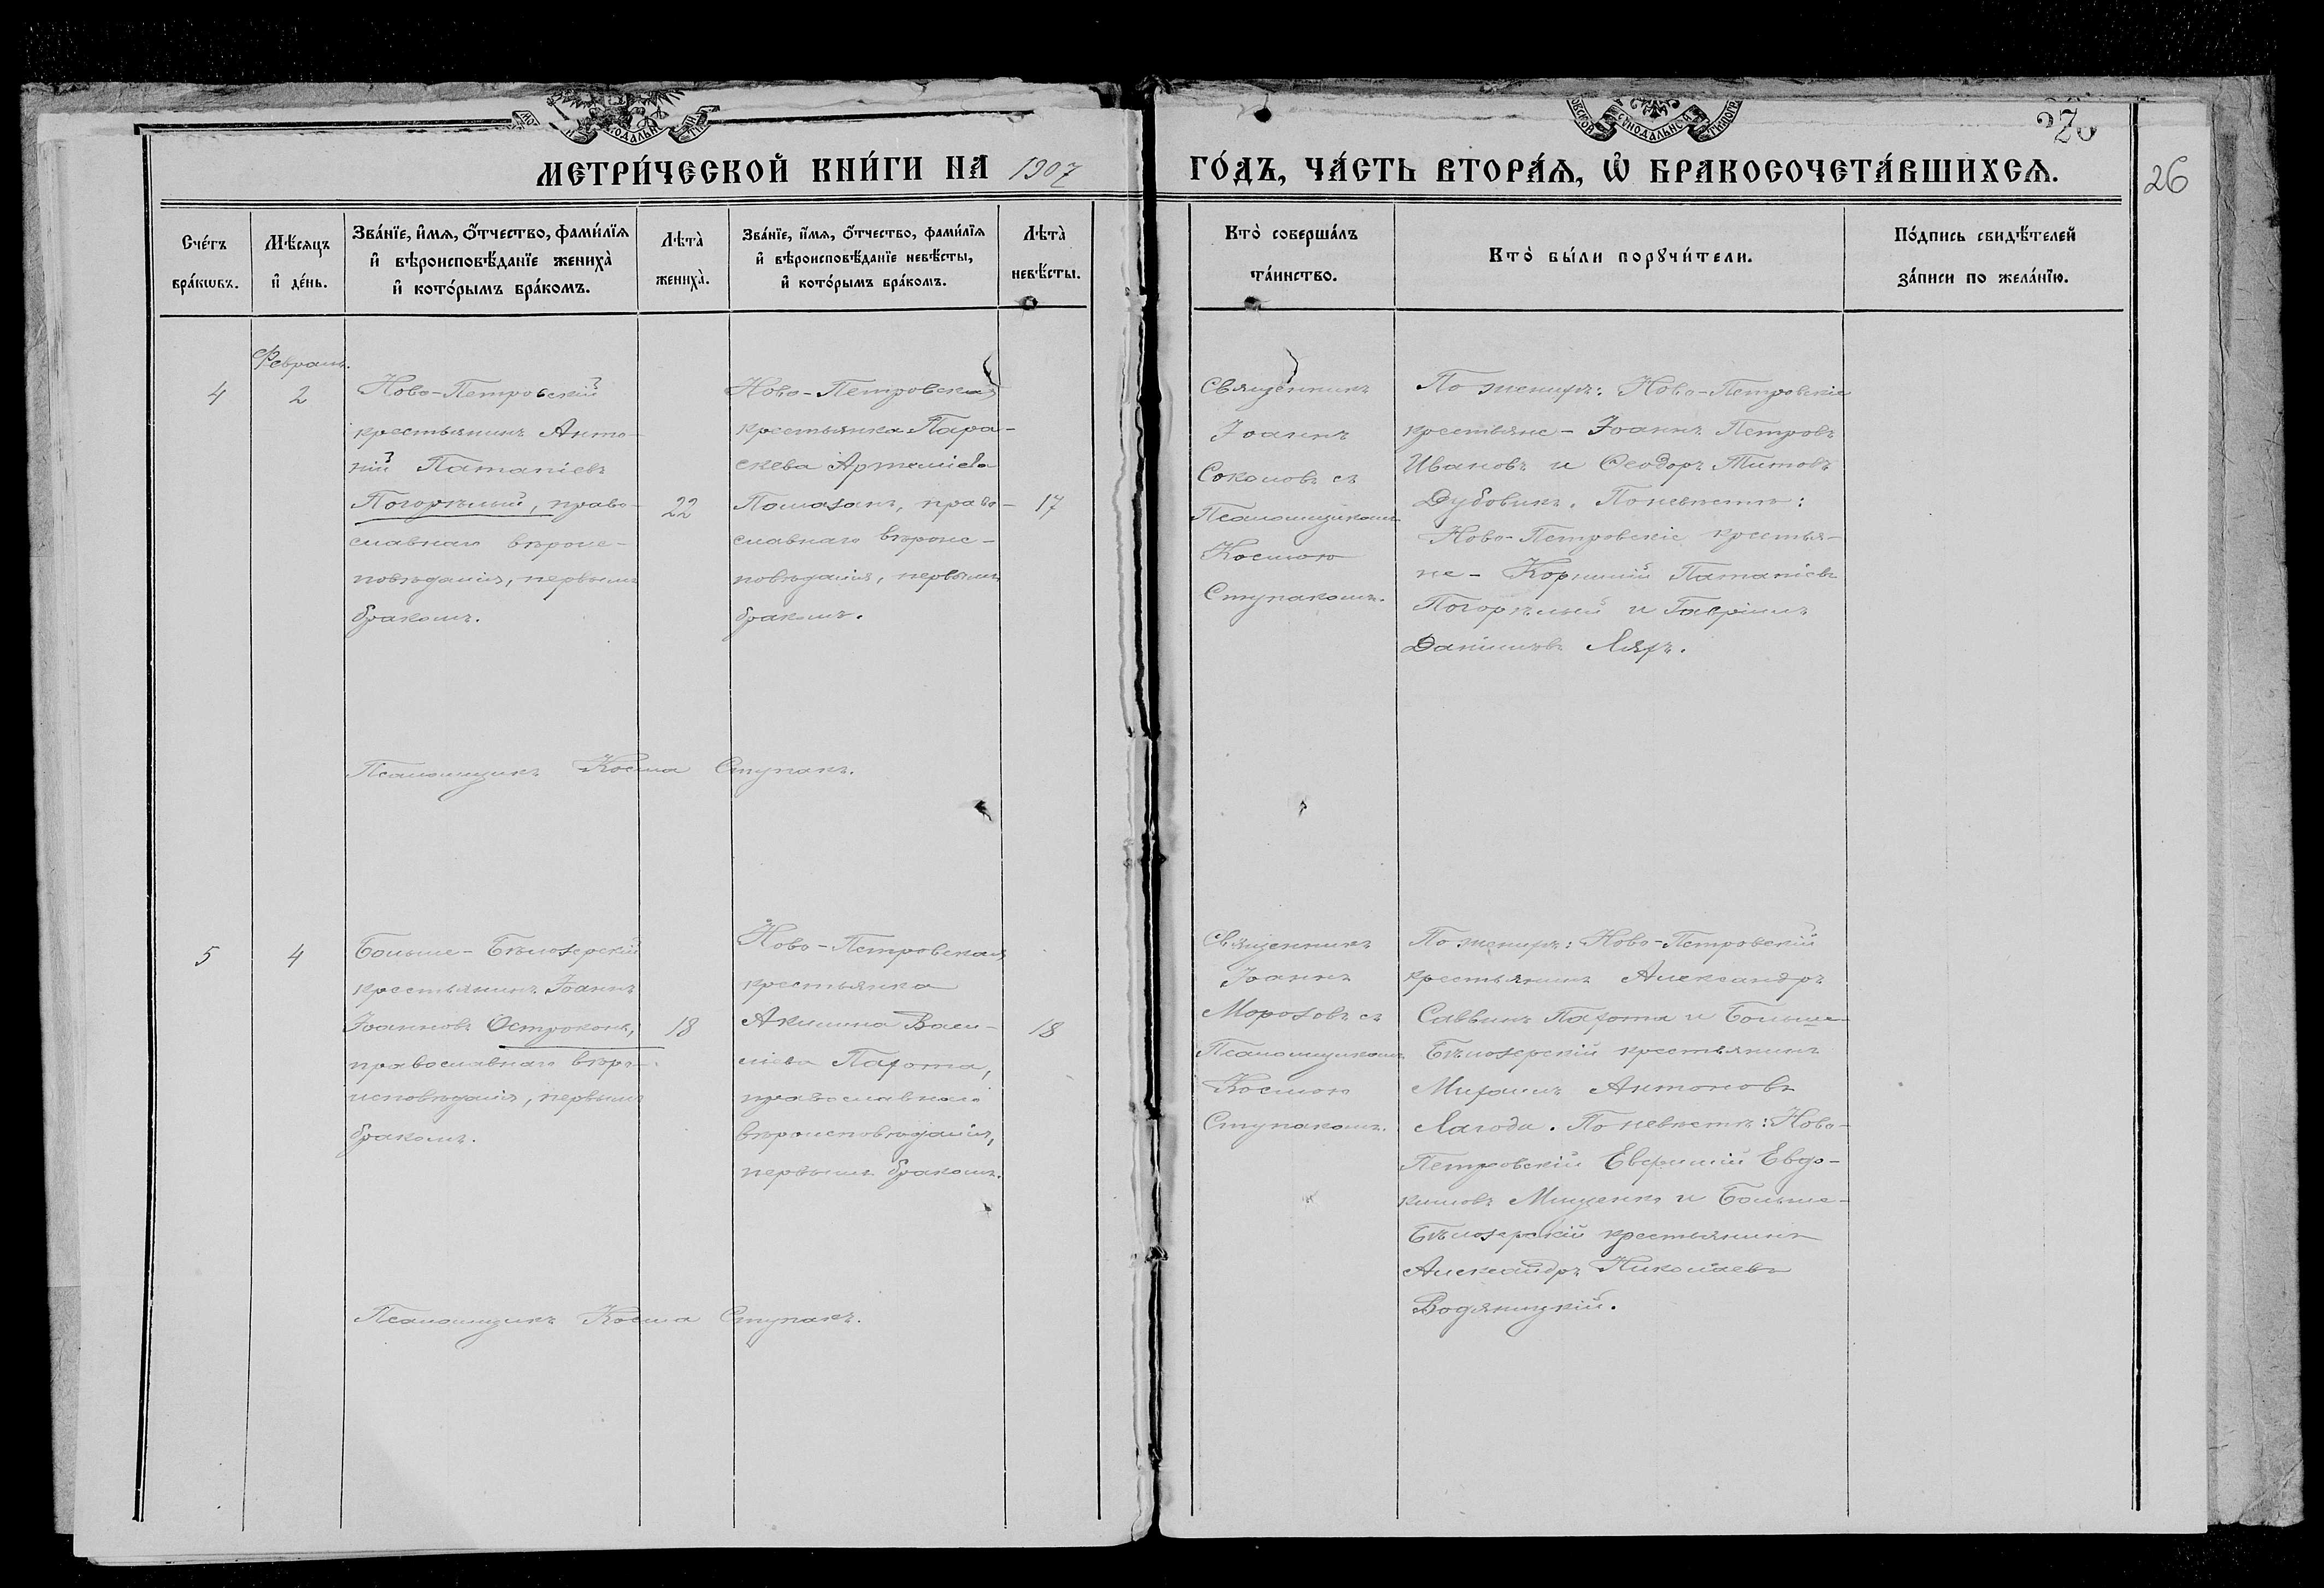 МЕТРИ́ЧЕСКОЙ КНИ́ГИ НА 1907 ГО́ДЪ, ЧА́СТЬ ВТОРА́Я, Ѡ БРАКОСОЧЕТА́ВШИХСЯ.
26
Сче́тъ бра́кѡвъ.
Мѣ́сяцъ и де́нь.
Зва́нїе, и́мя, о́тчество, фами́лїя
и вѣроисповѣ́данїе жениха̀
и кото́рымъ бра́комъ.
Лѣта̀ жениха̀.
Зва́нїе, и́мя, о́тчество, фами́лїя
и вѣроисповѣ́данїе невѣ́сты,
и кото́рымъ бра́комъ.
Лѣта̀ невѣ́сты.
Кто̀ соверша́лъ
та́инство.
Кто̀ бы́ли порꙋчи́тели.
По́дпись свидѣ́телей
за́писи по жела́нїю.
Февраль.
4
2
Ново-Петровскій
крестьянинъ Анто-
ній Патапіевъ
Погорѣлый, право-
славнаго вѣроис-
повѣданія, первымъ
бракомъ.
22
Ново-Петровская
крестьянка Пара-
скева Артеміева
Помазанъ, право-
славнаго вѣроис-
повѣданія, первымъ
бракомъ.
17
Священникъ
Іоаннъ
Соколовъ съ
Псаломщикомъ
Космою
Ступакомъ.
По женихѣ: Ново-Петровскіе
крестьяне - Іоаннъ Петровъ
Ивановъ и Ѳеодоръ Титовъ
Дубовикъ. По невѣстѣ:
Ново-Петровскіе крестья-
не - Корнилій Патапіевъ
Погорѣлый и Гавріилъ
Даниловъ Ляхъ.
Псаломщикъ Косма Ступакъ.
5
4
Больше-Бѣлозерскій
крестьянинъ Іоаннъ
Іоанновъ Остроконь,
православнаго вѣро-
исповѣданія, первымъ
бракомъ.
18
Ново-Петровская
крестьянка
Акилина Васи-
ліева Пахота,
православнаго
вѣроисповѣданія,
первымъ бракомъ.
18
Священникъ
Іоаннъ
Морозовъ съ
Псаломщикомъ
Космою
Ступакомъ.
По женихѣ: Ново-Петровскій
крестьянинъ Александръ
Саввинъ Пахота и Больше-
Бѣлозерскій крестьянинъ
Михаилъ Антоновъ
Лагода. По невѣстѣ: Ново-
Петровскій Евфимій Евдо-
кимовъ Мищенко и Больше-
Бѣлозерскій крестьянинъ
Александръ Николаевъ
Водяницкій.
Псаломщикъ Косма Ступакъ.